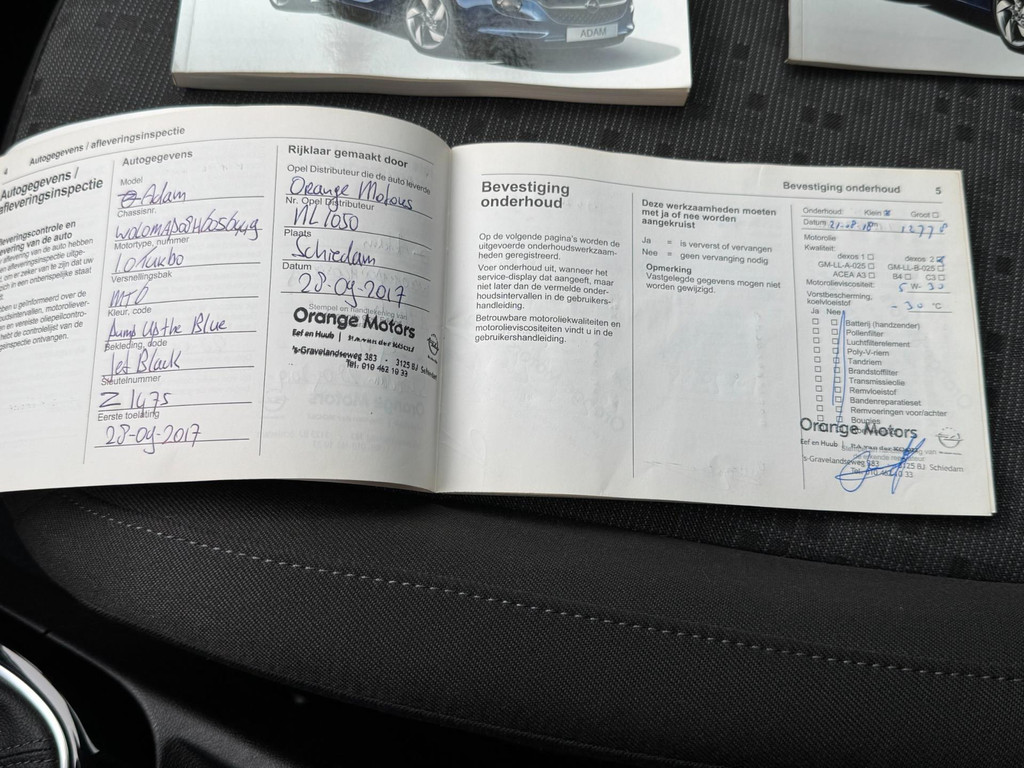 ADAM
4 Autogegevens / afleveringsinspectie
Autogegevens /
afleveringsinspectie
Autogegevens
Model
Adam
Chassisnr.
Motortype, nummer
1.0 Turbo
Versnellingsbak
MTA
Kleur, code
Pump Up the Blue
Bekleding, code
Jet Black
Sleutelnummer
Z 1475
Eerste toelating
28-09-2017
Rijklaar gemaakt door
Opel Distributeur die de auto leverde
Orange Motors
Nr. Opel Distributeur
NL 7050
Plaats
Schiedam
Datum
28-09-2017
Stempel en handtekening van
Orange Motors
Eef en Huub
's-Gravelandseweg 383 - 3125 BJ Schiedam
Tel. 010 462 10 33
Bevestiging
onderhoud
Op de volgende pagina's worden de
uitgevoerde onderhoudswerkzaam-
heden geregistreerd.
Voer onderhoud uit, wanneer het
service-display dat aangeeft, maar
niet later dan de vermelde onder-
houdsintervallen in de gebruikers-
handleiding.
Betrouwbare motoroliekwaliteiten en
motorolieviscositeiten vindt u in de
gebruikershandleiding.
Deze werkzaamheden moeten
met ja of nee worden
aangekruist
Ja = is ververst of vervangen
Nee = geen vervanging nodig
Opmerking
Vastgelegde gegevens mogen niet
worden gewijzigd.
Bevestiging onderhoud 5
Onderhoud: Klein Groot
Datum 21-08-18 12778
Motorolie
Kwaliteit:
dexos 1 dexos 2
GM-LL-A-025 GM-LL-B-025
ACEA A3 B4 C3
Motorolieviscositeit: 5 W- 30
Vorstbescherming,
koelvloeistof - 30 °C
Ja Nee
Batterij (handzender)
Pollenfilter
Luchtfilterelement
Poly-V-riem
Tandriem
Brandstoffilter
Transmissieolie
Remvloeistof
Bandenreparatieset
Remvoeringen voor/achter
Bougies
Orange Motors
Eef en Huub
's-Gravelandseweg 383 3125 BJ Schiedam